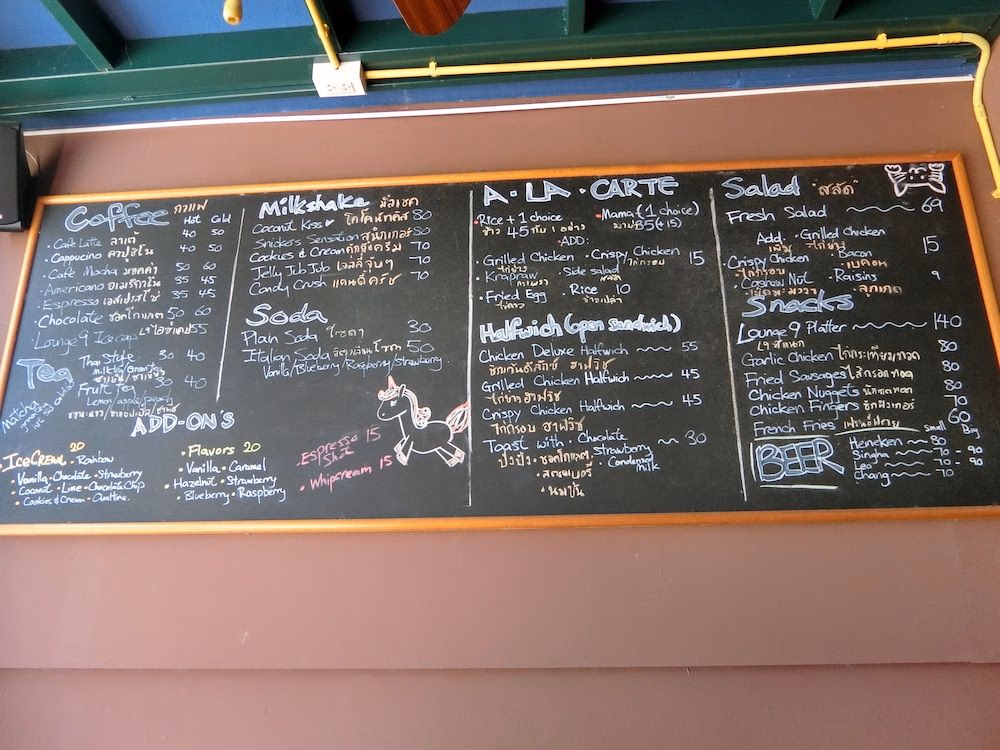 Coffee กาแฟ
Hot Cold
· Cafe Latte ลาเต้ 40 50
· Cappucino คาปูชิโน 40 50
· Cafe Mocha มอคค่า 50 60
· Americano อเมริกาโน 35 45
· Espresso เอสเปรสโซ่ 35 45
· Chocolate ชอคโกแลต 50 60
· Lounge 9 Icecap 55
Tea
Thai Style 30 40
Fruit Tea 30 40
Lemon, apple,
Matcha
ADD-ON'S
· ICECREAM 20
· Rainbow
· Vanilla · Chocolate · Strawberry
· Coconut · Lime · Chocolate Chip
· Cookies & Cream · Ovaltine
· Flavors 20
· Vanilla · Caramel
· Hazelnut · Strawberry
· Blueberry · Raspberry
Milkshake
Coconut Kiss 80
Snickers Sensation 80
Cookies & Cream คุกกี้&ครีม 70
Jelly Jub Jub เจลลี่จุ๊บๆ 70
Candy Crush แคนดี้ครัช 70
Soda
Plain Soda โซดา 30
Italian Soda อิตาเลี่ยนโซดา 50
Vanilla/Blueberry/Raspberry/Strawberry
· Espresso Shot 15
· Whipcream 15
A · LA · CARTE
· Rice + 1 choice
ข้าว 45 กับ 1 อย่าง
· Mama (1 choice)
มาม่า 35 (+15)
· ADD:
· Grilled Chicken · Crispy Chicken 15
ไก่ย่าง ไก่กรอบ
· Krapraw · Side salad
· Fried Egg · Rice 10
ไข่ดาว ข้าวเปล่า
Halfwich (open sandwich)
Chicken Deluxe Halfwich 55
Grilled Chicken Halfwich 45
ไก่ย่าง ฮาฟวิช
Crispy Chicken Halfwich 45
ไก่กรอบ ฮาฟวิช
Toast with · Chocolate 30
· Strawberry
· Condensed Milk
ปังปิ้ง · ชอคโกแลต
· สตรอเบอรี่
· นมข้น
Salad "สลัด"
Fresh Salad 69
Add · Grilled Chicken 15
เพิ่ม ไก่ย่าง
· Crispy Chicken · Bacon
ไก่กรอบ เบคอน
· Cashew Nut · Raisins 9
ลูกเกด
Snacks
Lounge 9 Platter 140
Garlic Chicken ไก่กระเทียมทอด 80
Fried Sausages ไส้กรอกทอด 80
Chicken Nuggets นักเก็ตทอด 80
Chicken Fingers ชิกฟิงเกอร์ 70
French Fries 60
BEER
Small Big
Heineken 80
Singha 70 - 90
Leo 70 - 90
Chang 70